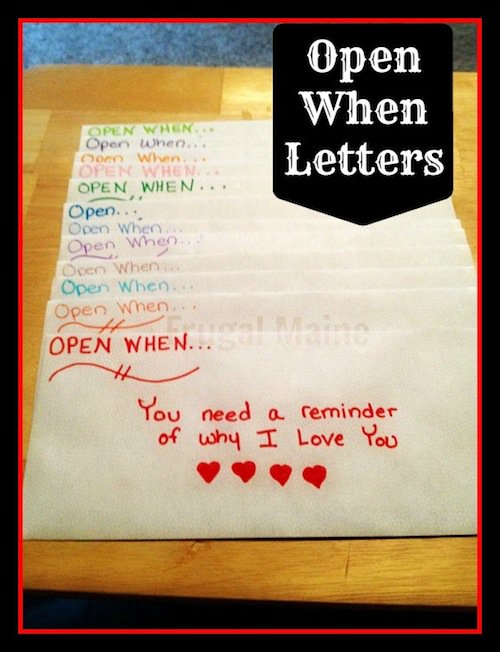 Open
When
Letters
OPEN WHEN...
Open When...
Open When...
OPEN WHEN...
OPEN WHEN...
Open...
Open When...
Open When...
Open When...
Open When...
Open When...
Frugal Maine
OPEN WHEN...
You need a reminder
of why I Love You